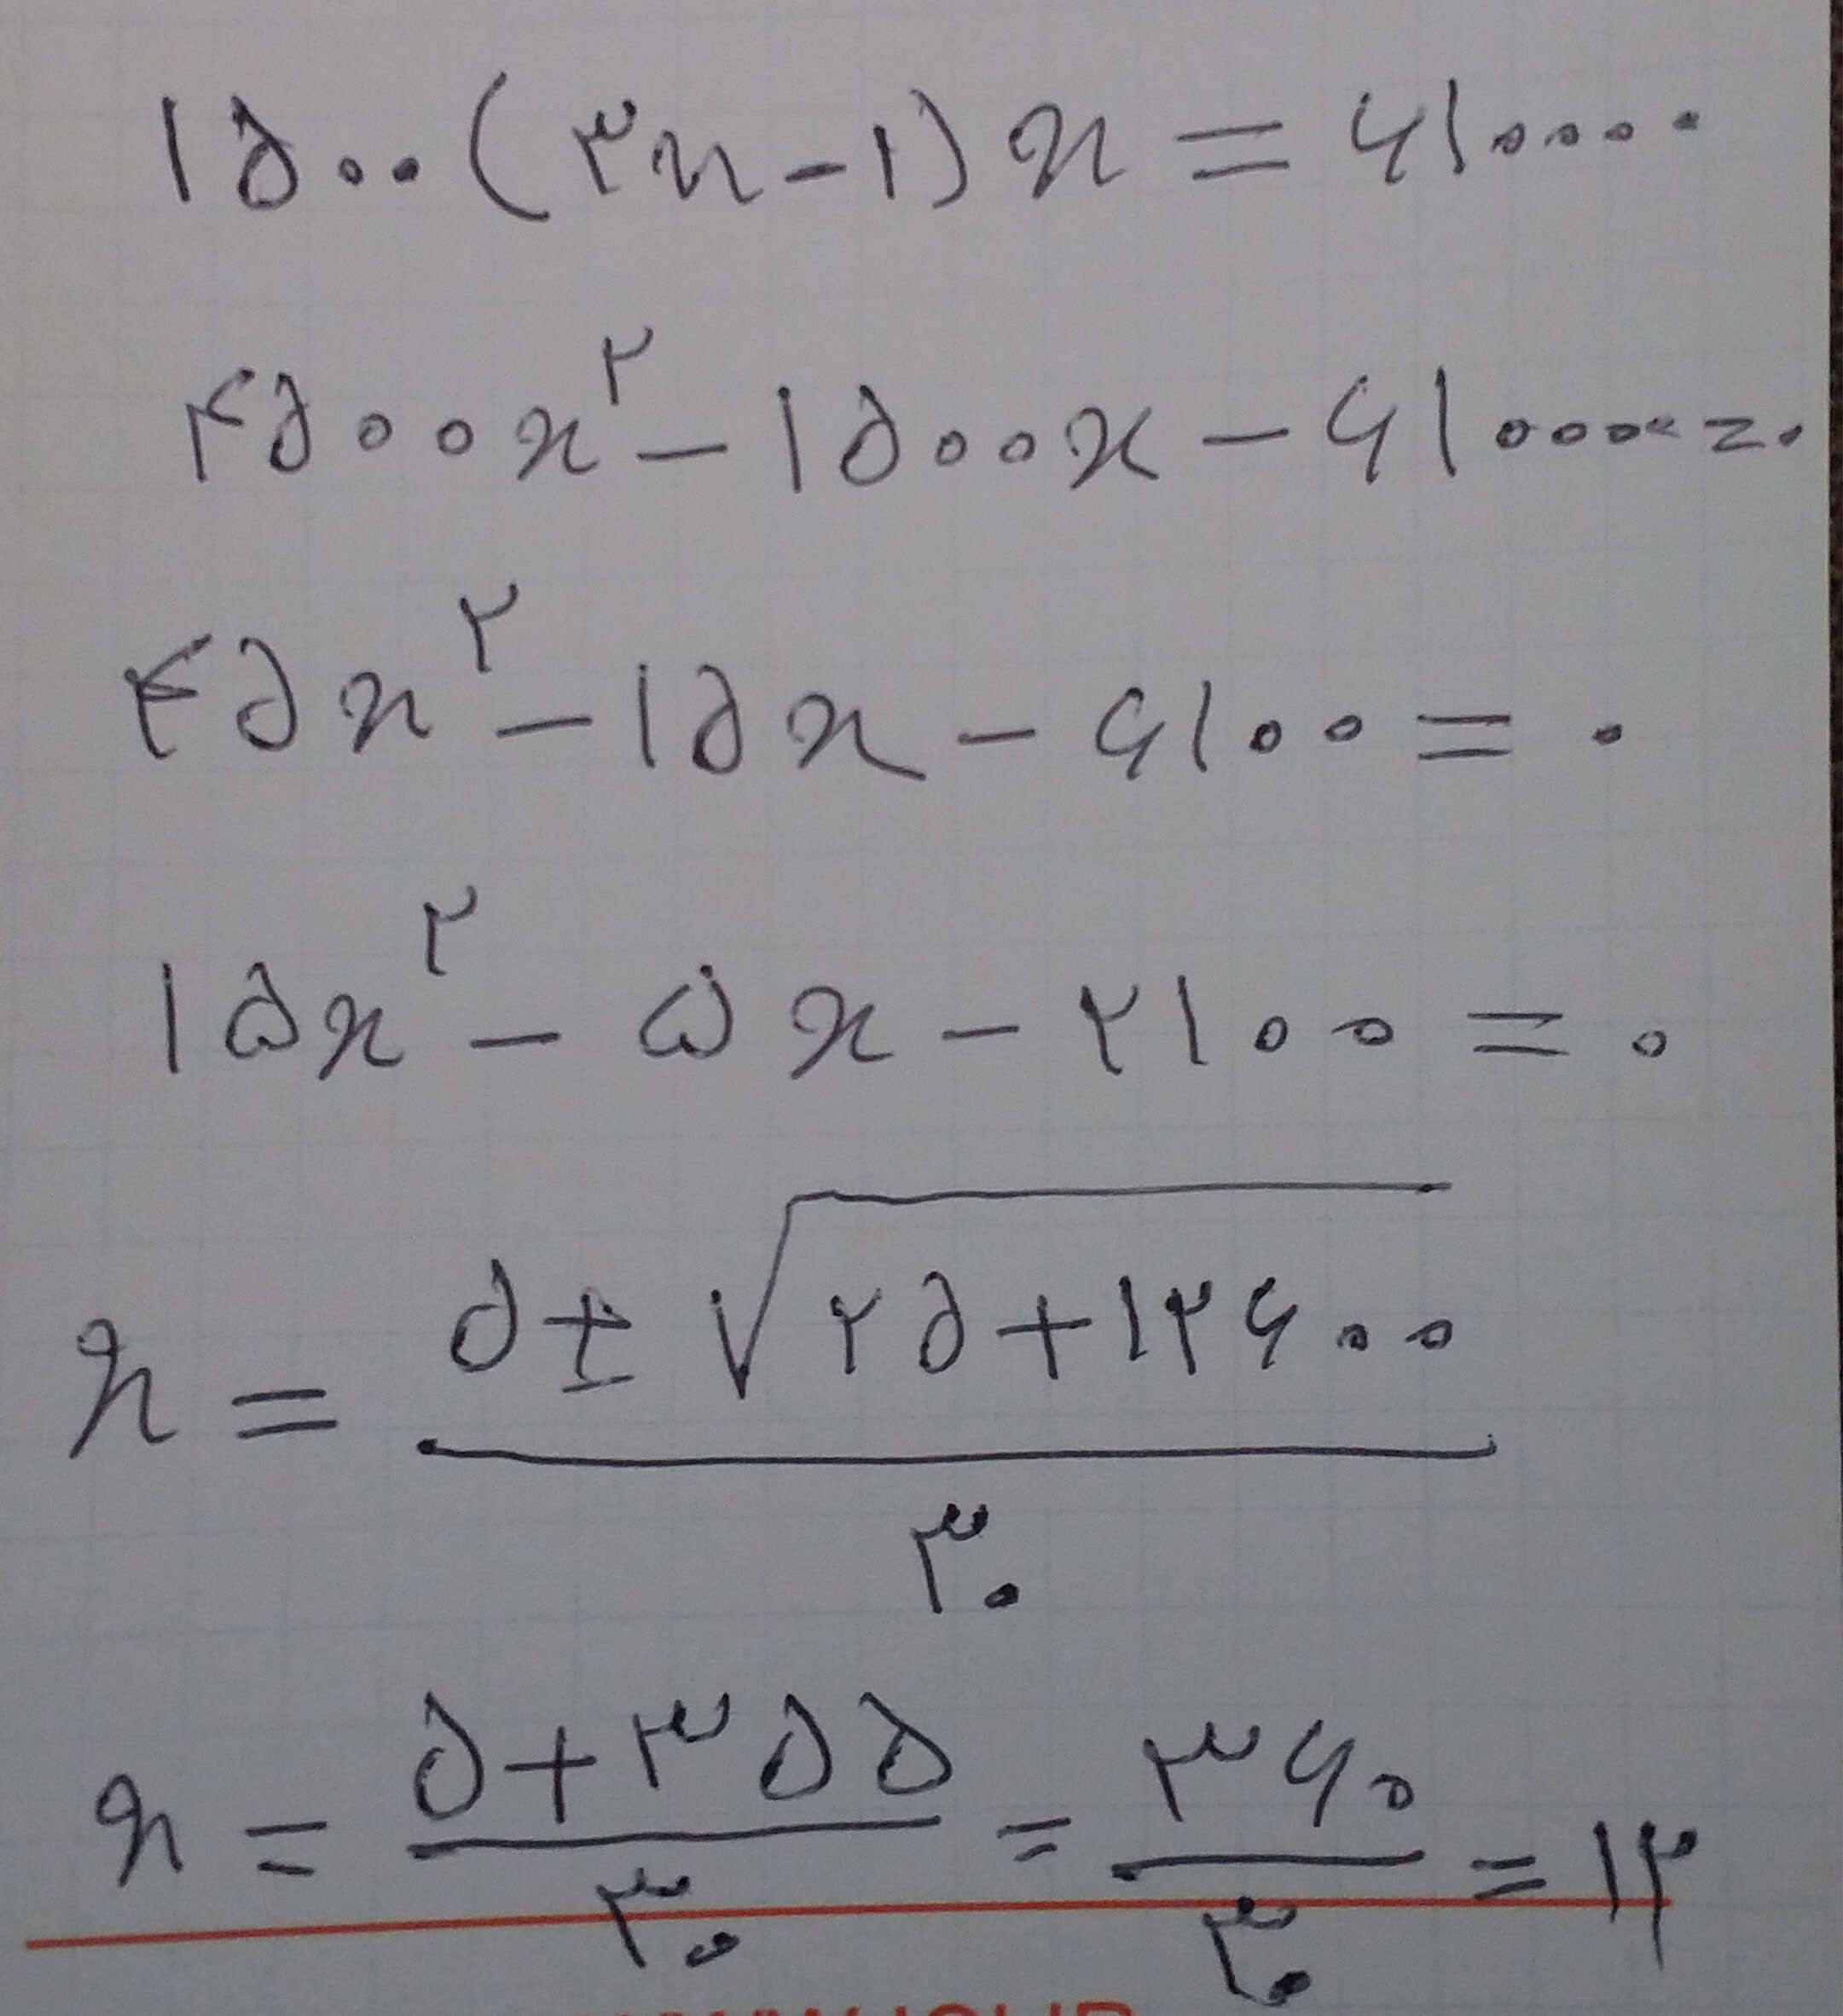 ۱۵۰۰(۳x-۱)x = ۶۱۰۰۰۰
۴۵۰۰x^۲ - ۱۵۰۰x - ۶۱۰۰۰۰ = ۰
۴۵x^۲ - ۱۵x - ۶۱۰۰ = ۰
۱۵x^۲ - ۵x - ۲۱۰۰ = ۰
x = (۵ ± √(۲۵+۱۲۶۰۰)) / ۳۰
x = (۵+۳۵۵)/۳۰ = ۳۶۰/۳۰ = ۱۲